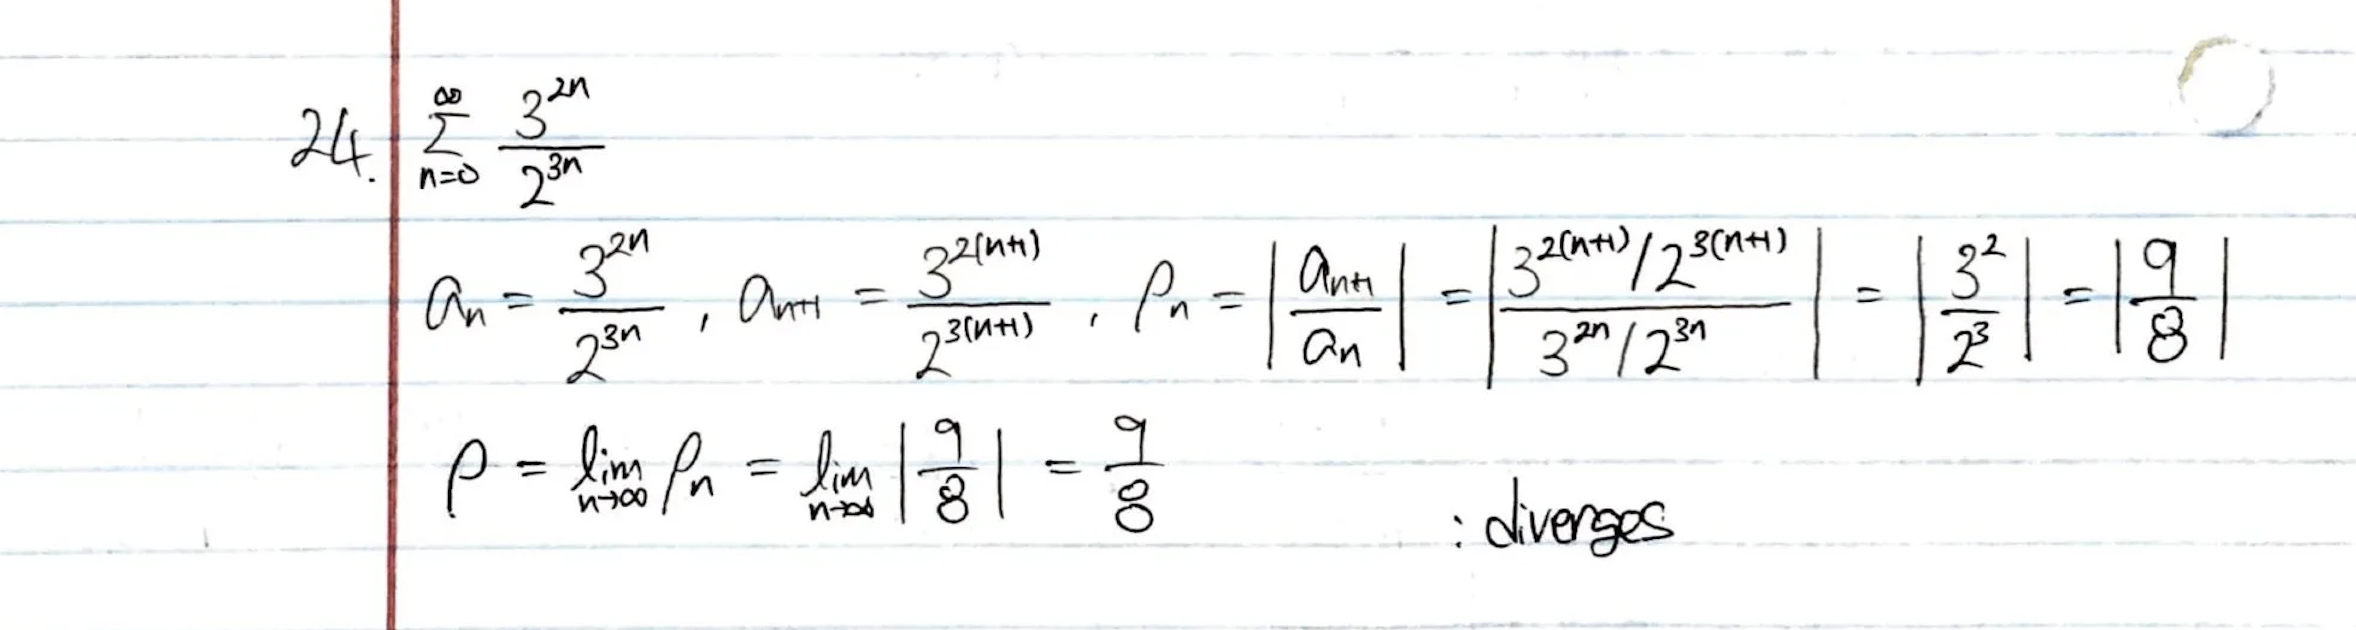 24. \sum_{n=0}^{\infty} \frac{3^{2n}}{2^{3n}}
a_n = \frac{3^{2n}}{2^{3n}}, a_{n+1} = \frac{3^{2(n+1)}}{2^{3(n+1)}}, \rho_n = \left| \frac{a_{n+1}}{a_n} \right| = \left| \frac{3^{2(n+1)} / 2^{3(n+1)}}{3^{2n} / 2^{3n}} \right| = \left| \frac{3^2}{2^3} \right| = \left| \frac{9}{8} \right|
\rho = \lim_{n \to \infty} \rho_n = \lim_{n \to \infty} \left| \frac{9}{8} \right| = \frac{9}{8}
: diverges